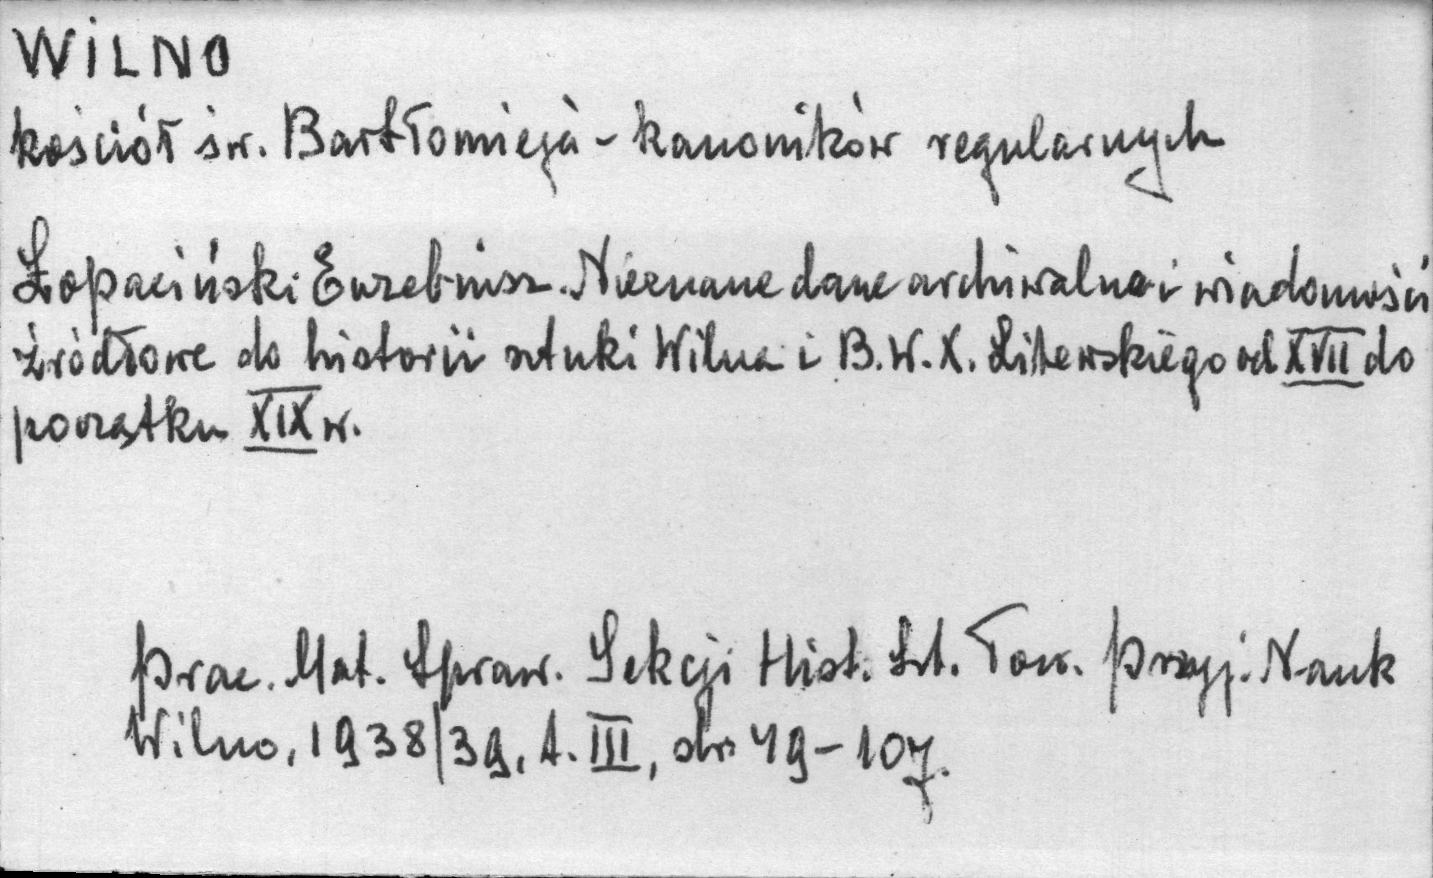 WILNO
kościół św. Bartłomieja - kanoników regularnych
Łopaciński Euzebiusz. Nieznane dane archiwalne i wiadomości
źródłowe do historii sztuki Wilna i B.W.X. Litewskiego od XVII do
początku XIX w.
Prac. Mat. Spraw. Sekcji Hist. Szt. Tow. Przyj. Nauk
Wilno, 1938/39, t. III, str. 49-107.